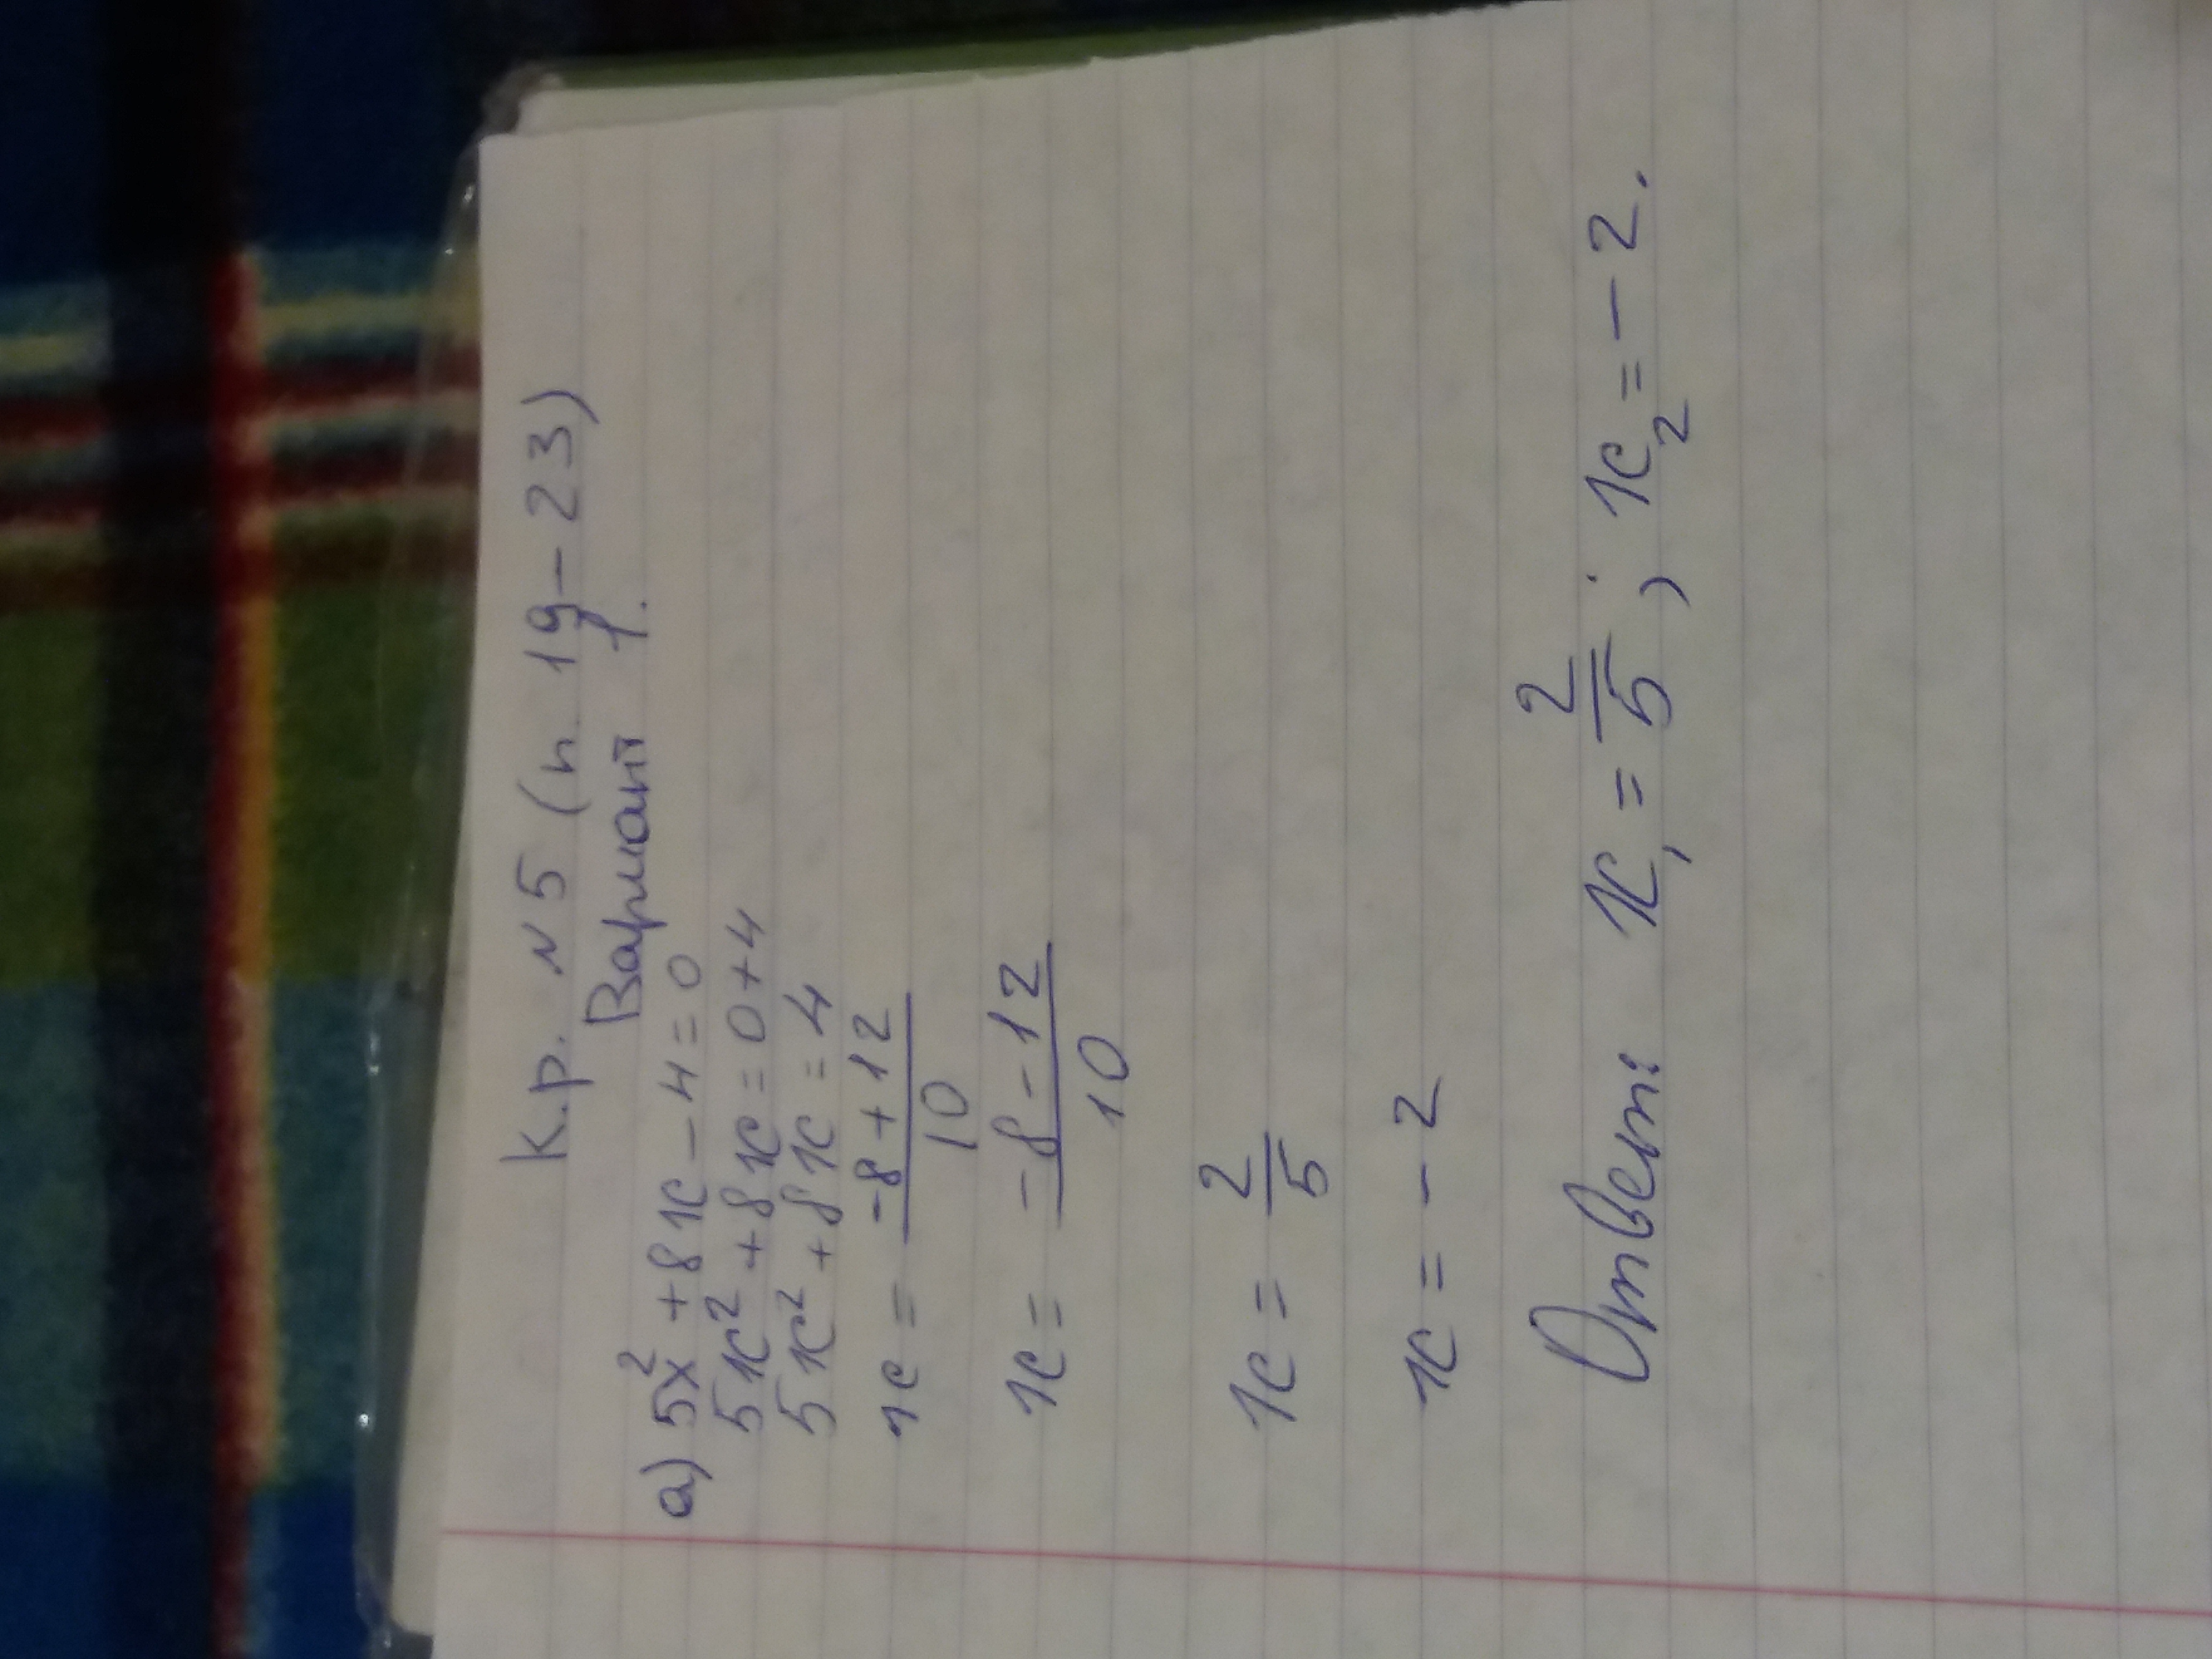 К.р. №5 (п. 19-23)
Вариант 1.
а) 5x² + 8x - 4 = 0
5x² + 8x = 0 + 4
5x² + 8x = 4
x = (-8 + 12)/10
x = (-8 - 12)/10
x = 2/5
x = -2
Ответ: x₁ = 2/5; x₂ = -2.